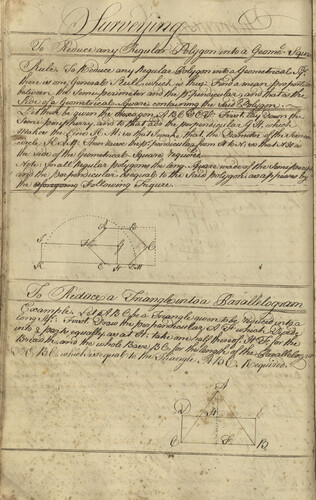 Surveying
To Reduce any Regular Polygon into a Geometr. Square
Rule. To Reduce any Regular Polygon into a Geometrical Sqr.
there is one General Rule which is thus: Find a mean proportional
between the Semiperimeter and the Perpendicular and that is the
Side of a Geometrical Square containing the Said Polygon
Let there be given the A B C D E F First lay Down the
Semiperimetry, and to that add the perpendicular G H which
makes the Line K M: so that makes that the Diameter of the Semi
circle then have the perpendicular from to so that is
the side of the Geometrical Square required
Note, In all Regular polygons the long Square made of the Semiperimeter
and the perpendicular is equal to the Said polygon, as appears by
the Following Figure
To Reduce a Triangle into a Parallelogram
Example. Let A B C be a Triangle given to be reduced into a
long Sqr: First Draw the perpendicular A F which Divide
into 2 parts equally, as at H take one half thereof H F for the
Breadth, and the whole Base B C for the length of the Parallelogram
D E B C which is equal to the Triangle A B C Required
A
D H E
C F B